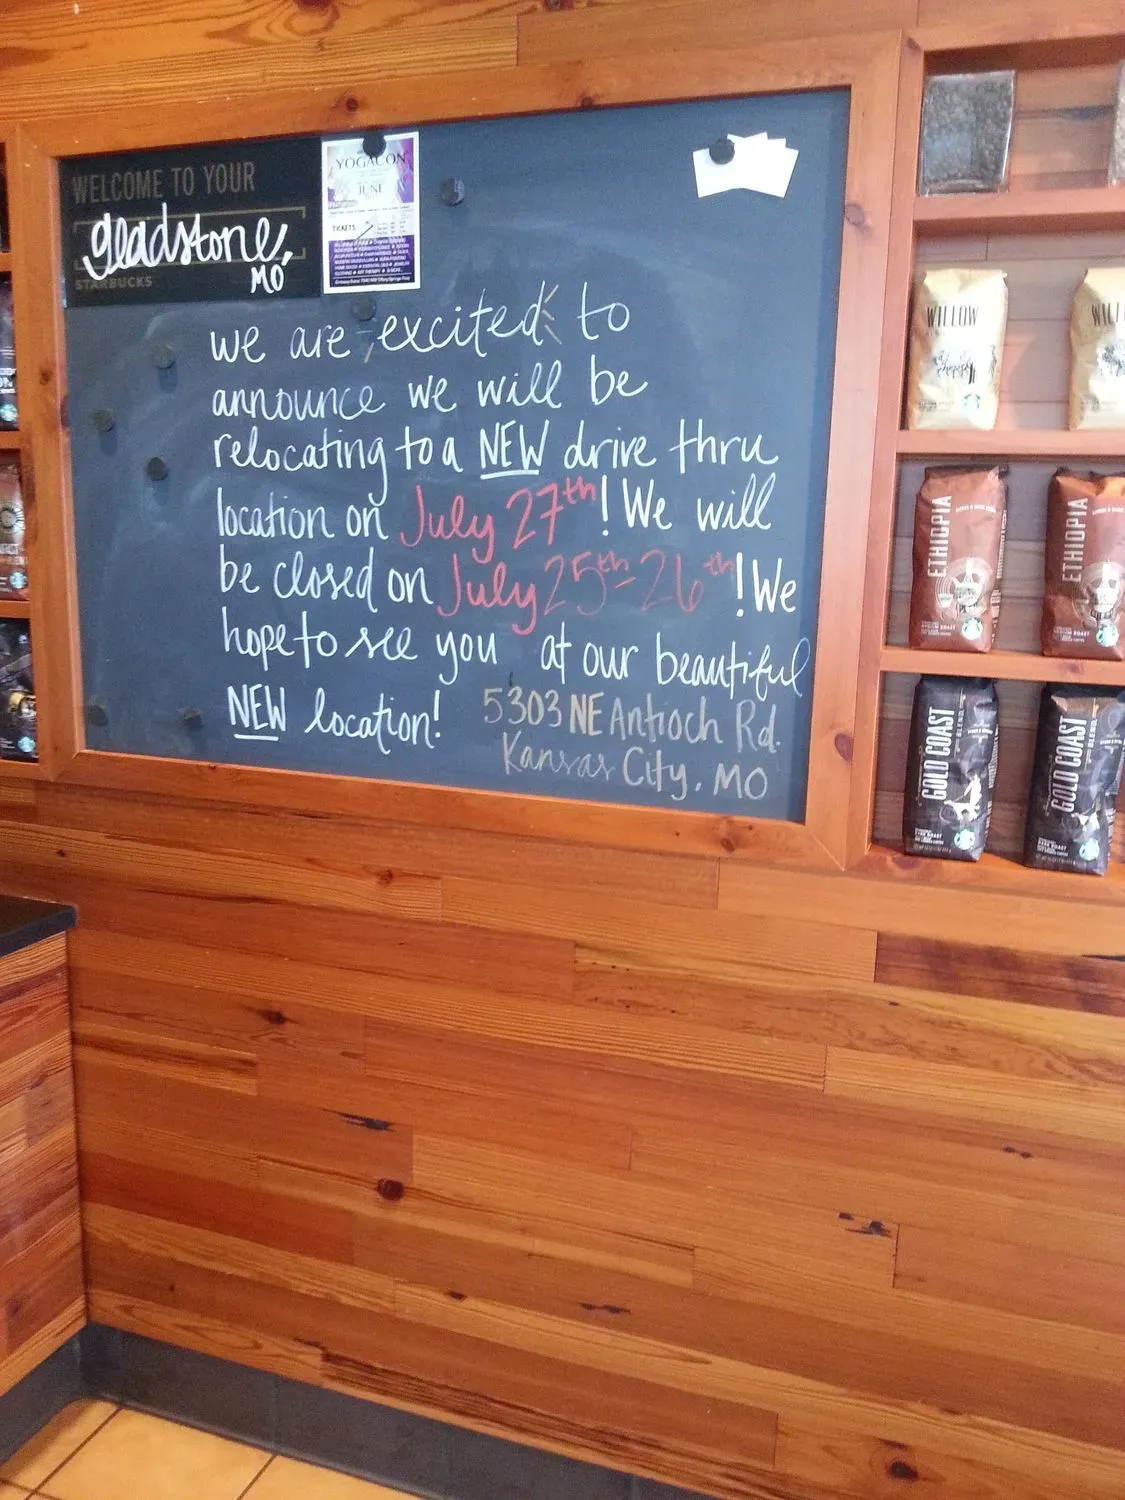 WELCOME TO YOUR
gladstone,
MO
STARBUCKS
YOGACON
JUNE
TICKETS
we are excited to
announce we will be
relocating to a NEW drive thru
location on July 27th! We will
be closed on July 25th-26th! We
hope to see you at our beautiful
NEW location!
5303 NE Antioch Rd.
Kansas City, MO
WILLOW
ETHIOPIA
ETHIOPIA
GOLD COAST
BLEND
GOLD COAST
BLEND